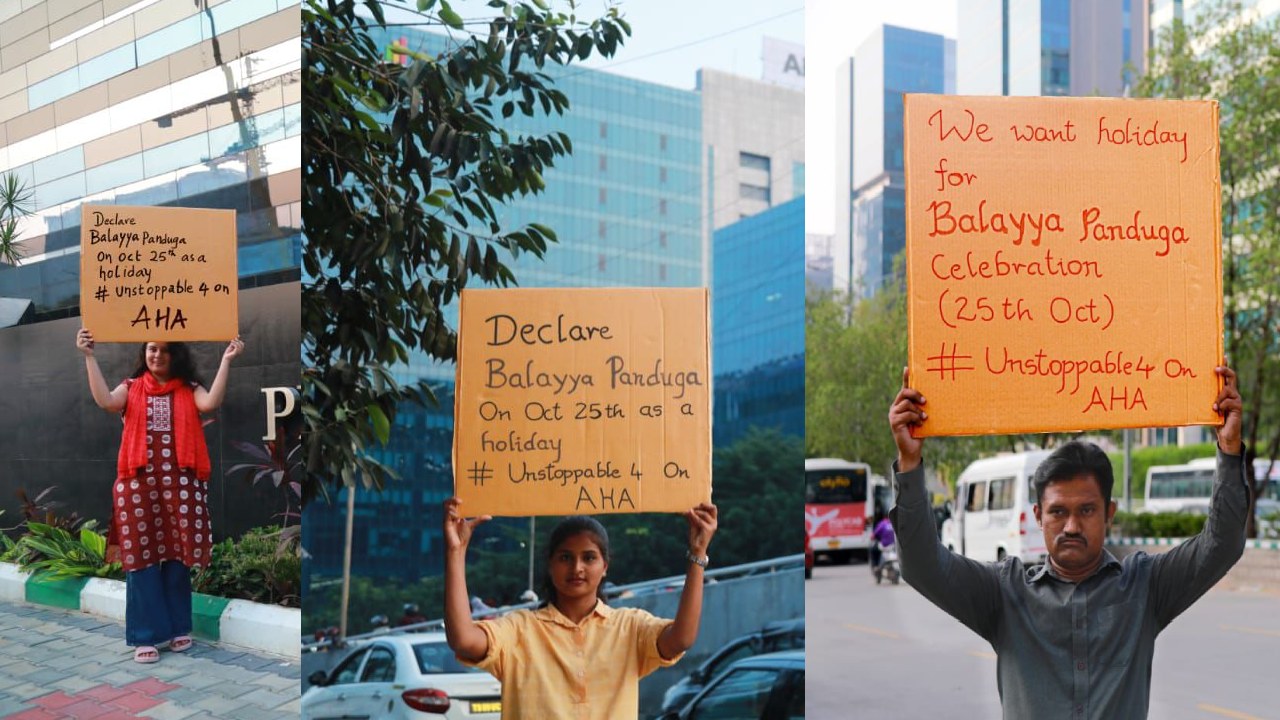 Declare
Balayya Panduga
On oct 25th as a
holiday
# Unstoppable 4 on
AHA
P
Declare
Balayya Panduga
On Oct 25th as a
holiday
# Unstoppable 4 On
AHA
A
We want holiday
for
Balayya Panduga
Celebration
(25th Oct)
# Unstoppable4 On
AHA